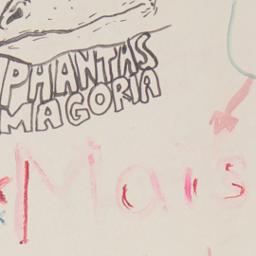 PHANTAS
MAGORIA
Mais